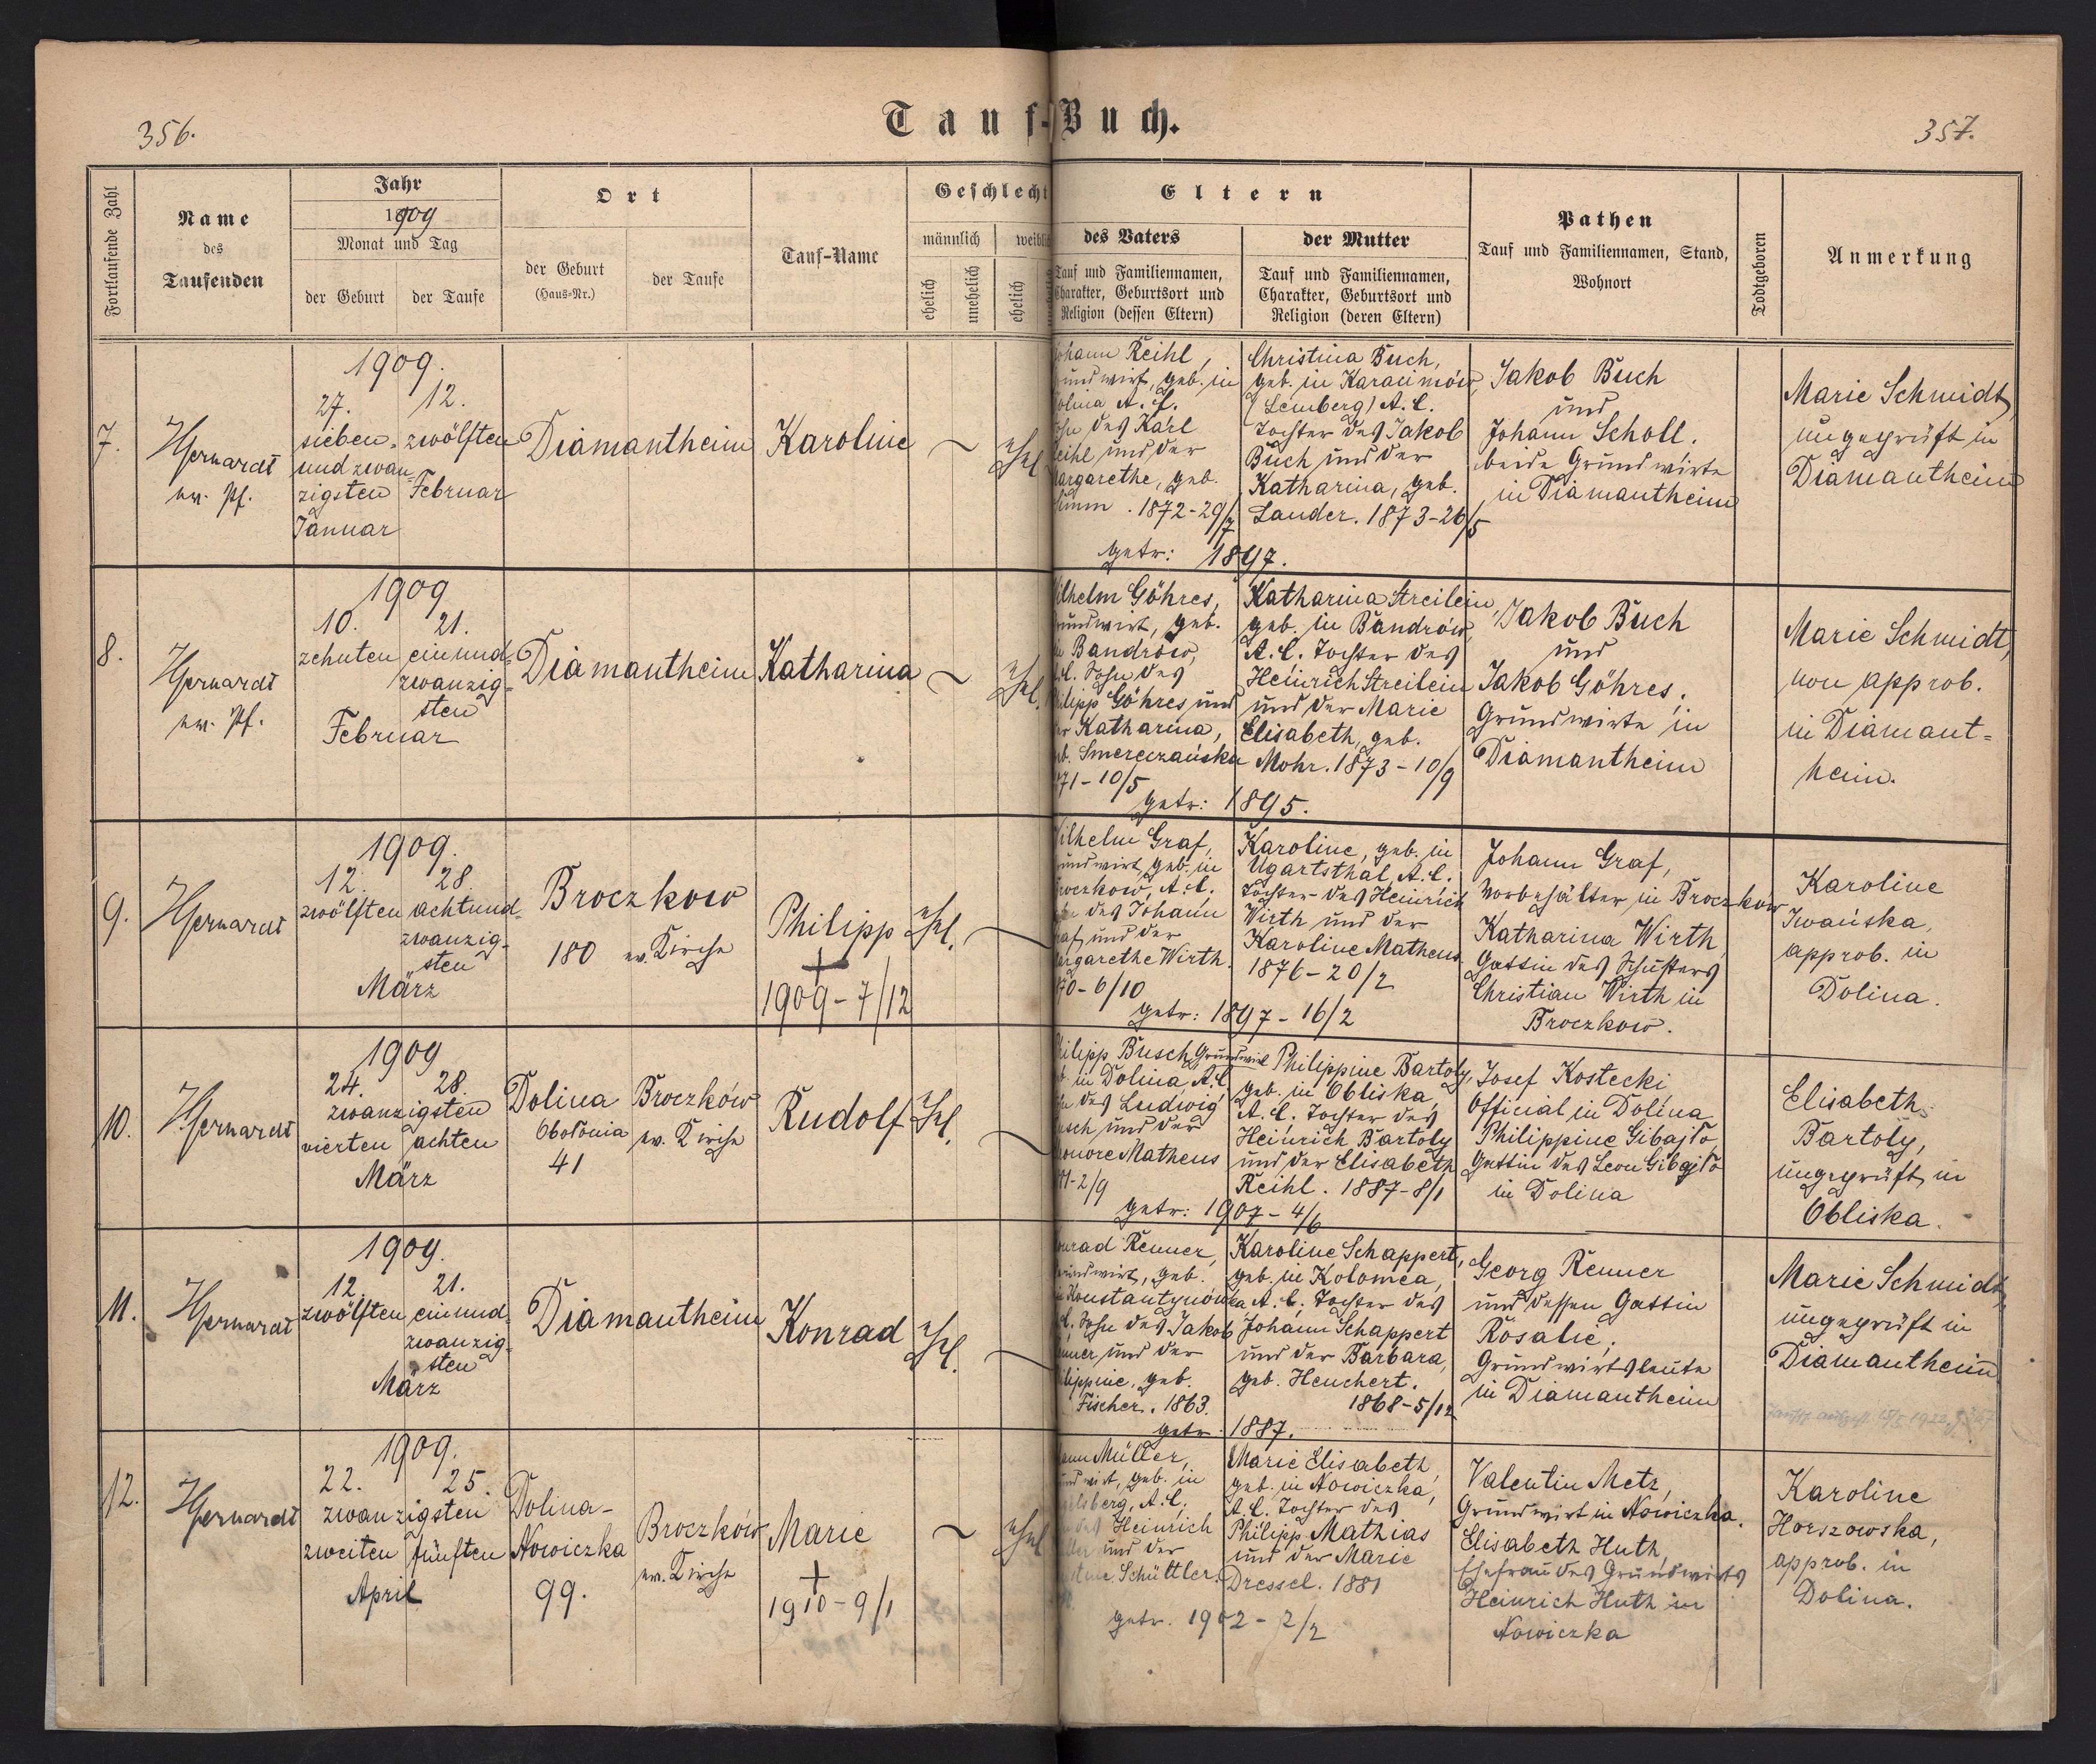 356.
Tauf-Buch.
357.
Fortlaufende Zahl
Name
des
Taufenden
Jahr
1909
Monat und Tag
der Geburt
der Taufe
Ort
der Geburt
(Haus-Nr.)
der Taufe
Tauf-Name
Geschlecht
männlich
weiblich
ehelich
unehelich
ehelich
Eltern
des Vaters
Tauf und Familiennamen,
Charakter, Geburtsort und
Religion (dessen Eltern)
der Mutter
Tauf und Familiennamen,
Charakter, Geburtsort und
Religion (deren Eltern)
Pathen
Tauf und Familiennamen, Stand,
Wohnort
Todtgeboren
Anmerkung
7.
ev. Pf.
1909.
27. 12.
sieben- zwölften
und zwan-
zigsten Februar
Januar
Diamantheim
Karoline
ehel
Johann Reihl,
undwirt, geb. in
olina A. C.
ohn des Karl
eihl und der
argarethe, geb.
1872-29/7
Christina Buch,
geb. in Karacinów,
(Lemberg) A. C.
Tochter des Jakob
Buch und der
Katharina, geb.
Lander. 1873-26/5
getr: 1897.
Jakob Buch
und
Johann Scholl.
beide Grundwirte
in Diamantheim
Marie Schmidt,
ungeprüft in
Diamantheim
8.
ev. Pf.
1909
10. 21.
zehnten einund-
zwanzig-
sten
Februar
Diamantheim
Katharina
ehel.
ilhelm Göhres,
undwirt, geb.
Bandrów,
Sohn des
ilipp Göhres und
Katharina,
b. Smereczańska
71-10/5
Katharina Streilein,
geb. in Bandrów,
A. C. Tochter des
Heinrich Streilein
und der Marie
Elisabeth, geb.
Mohr. 1873-10/9
getr: 1895.
Jakob Buch
und
Jakob Göhres,
Grundwirte in
Diamantheim
Marie Schmidt,
non approb.
in Diamant-
heim.
9.
1909.
12. 28.
zwölften achtund-
zwanzig-
sten
März
Broczkow
180 ev. Kirche
Philipp
+
1909-7/12
ehel.
ilhelm Graf,
undwirt, geb. in
roczkow, A. C.
des Johann
af und der
argarethe Wirth.
70-6/10
Karoline, geb. in
Ugartsthal, A. C.
Tochter des Heinrich
Wirth und der
Karoline Matheus
1876-20/2
getr: 1897-16/2
Johann Graf,
Vorbehälter in Broczków
Katharina Wirth
Gattin des Schusters
Christian Wirth in
Broczkow.
Karoline
Iwańska,
approb. in
Dolina.
10.
1909
24. 28.
zwanzigsten
vierten achten
März
Dolina
Obolonia
41
Broczków
ev. Kirche
Rudolf
ehel.
ilipp Busch, Grundwirt
in Dolina, A. C.
des Ludwig
usch und der
Matheus
71-2/9
Philippine Bartoly,
geb. in Obliska,
A. C. Tochter des
Heinrich Bartoly
und der Elisabeth
Reihl. 1887-8/1
getr: 1907-4/6
Josef Kostecki
Official in Dolina
Philippine Gibajło
Gattin des Leon Gibajło
in Dolina
Elisabeth
Bartoly,
ungeprüft in
Obliska.
11.
1909.
12. 21.
zwölften einund-
zwanzig-
sten
März
Diamantheim
Konrad
ehel.
onrad Renner,
undwirt, geb.
Konstantynówka
Sohn des Jakob
enner und der
ilippine, geb.
Fischer. 1863.
Karoline Schappert,
geb. in Kolomea,
A. C. Tochter des
Johann Schappert
und der Barbara,
geb. Heuchert.
1868-5/12
getr. 1887.
Georg Renner
und dessen Gattin
Rosalie,
Grundwirtsleute
in Diamantheim
Marie Schmidt,
ungeprüft in
Diamantheim
12.
1909.
22. 25.
zwanzigsten
zweiten fünften
April
Dolina-
Nowiczka
99.
Broczków
ev. Kirche
Marie
+
1910-9/1
ehel
ann Müller,
undwirt, geb. in
elsberg, A. C.
des Heinrich
und der
Schüttler.
Marie Elisabeth
geb. in Nowiczka,
A. C. Tochter des
Philipp Mathias
und der Marie
Dressel. 1881
getr. 1902-2/2
Valentin Metz,
Grundwirt in Nowiczka.
Elisabeth Huth,
Ehefrau des Grundwirts
Heinrich Huth in
Nowiczka
Karoline
Horszowska,
approb. in
Dolina.